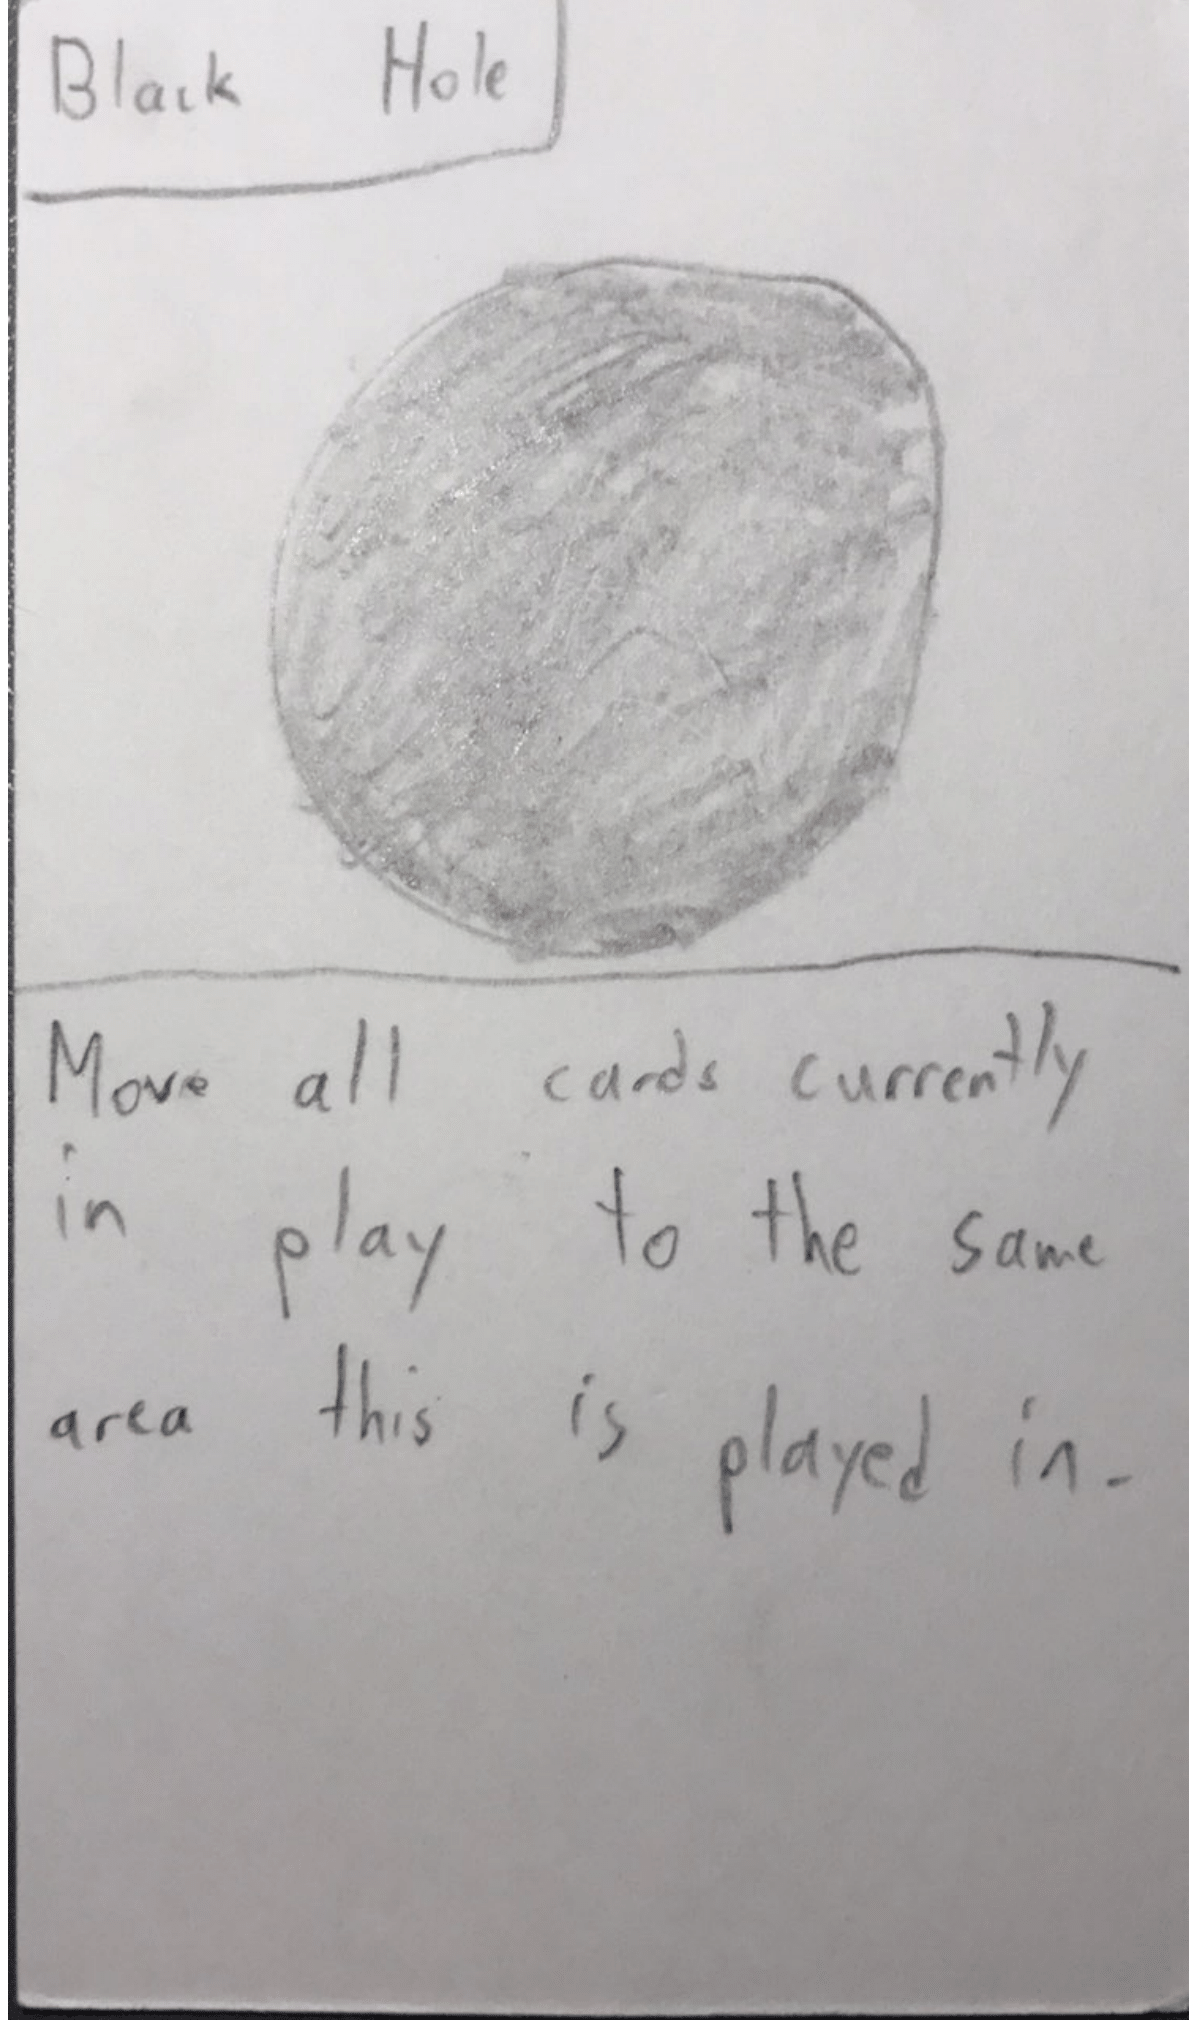 Black Hole
Move all cards currently
in play to the same
area this is played in.